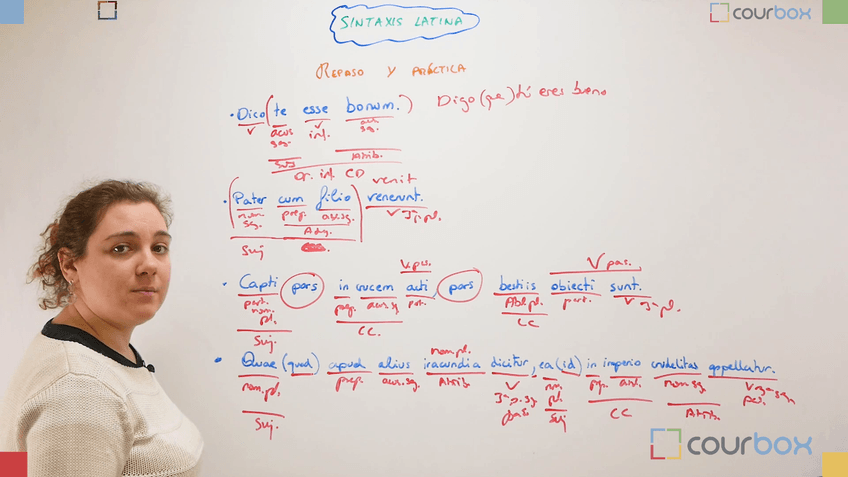 SINTAXIS LATINA
courbox
REPASO Y PRÁCTICA
• Dico (te esse bonum.) Digo (que) tú eres bueno
V acus. sg. V inf. acus. sg.
Suj Atrib.
Or. inf. CD venit
• (Pater cum filio) venerunt.
nom. sg. prep. V 3ª p. pl.
Suj
V. pas. V pas.
• Capti pars in crucem acti pars bestiis obiecti sunt.
part. nom. pl. prep. acus. sg. part. Abl. pl. part. V 3ª pl.
Suj. CC. CC
nom. pl.
• Quae (quod) apud alius iracundia dicitur, ea (id) in imperio crudelitas appellatur.
nom. pl. prep. acus. sg. Atrib. V 3ª p. sg. pas. nom. pl. prep. nom. sg. V 3ª sg. pas.
Suj. Suj CC Atrib.
courbox